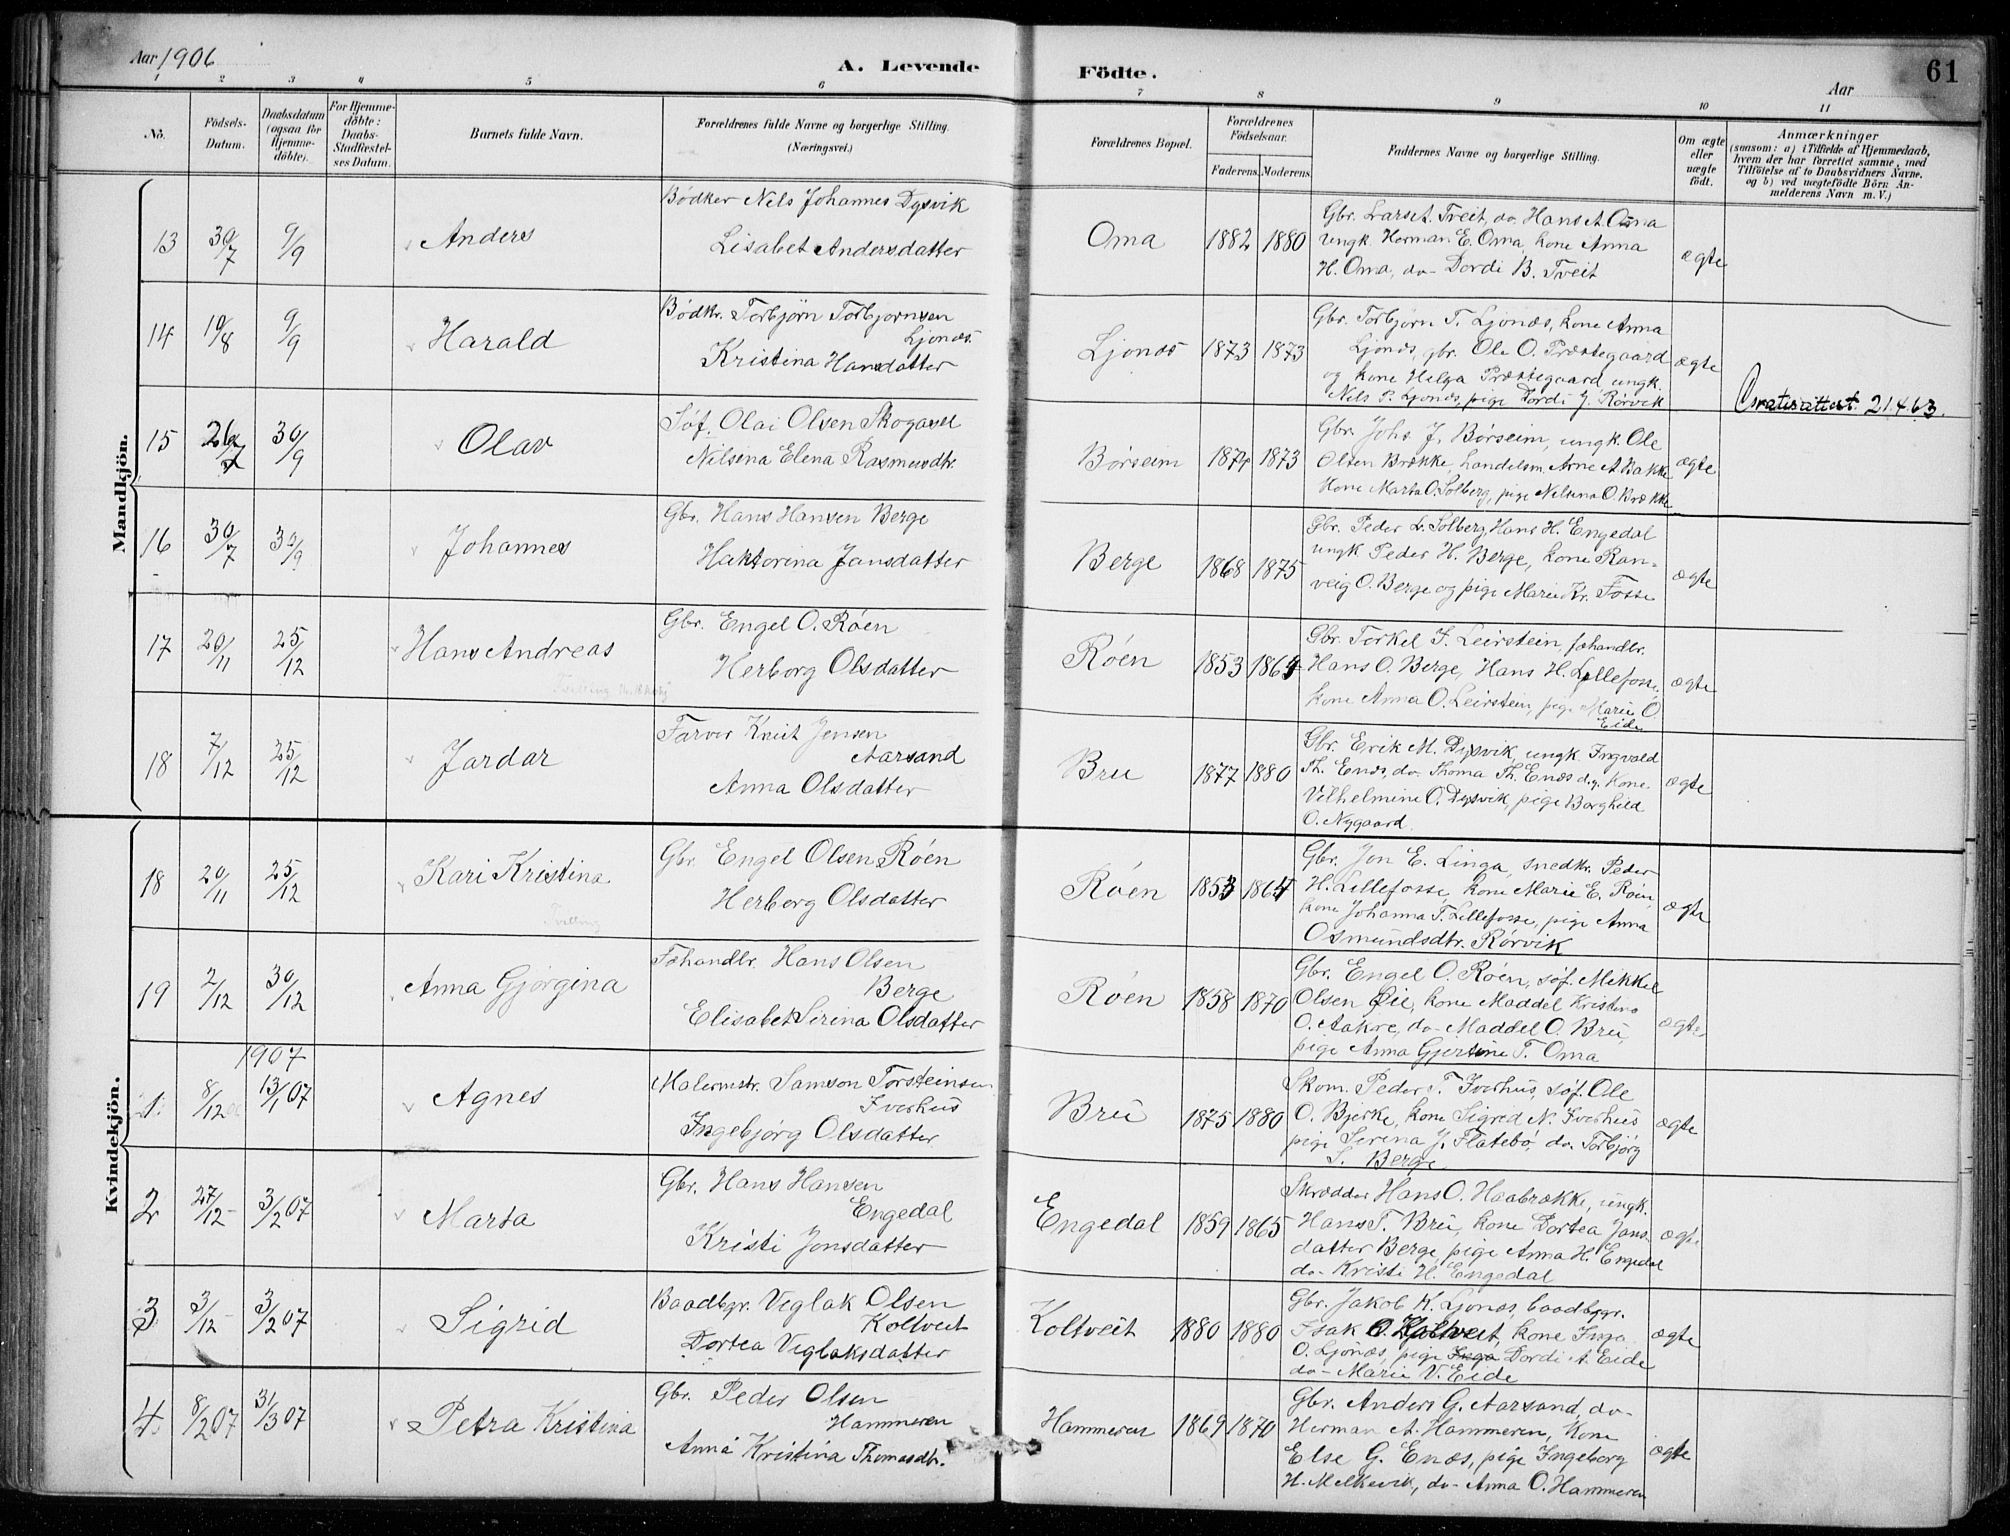 Aar 1906
A. Levende
Födte.
Aar
61
1 2 3 4 5 6 7 8 9 10 11
No.
Födsels-Datum.
Daabsdatum (ogsaa for Hjemme-döbte).
For Hjemme-döbte: Daabs-Stadfæstel-ses Datum.
Barnets fulde Navn.
Forældrenes fulde Navne og borgerlige Stilling.
(Næringsvei.)
Forældrenes Bopæl.
Forældrenes Födselsaar.
Faderens. Moderens.
Faddernes Navne og borgerlige Stilling.
Om ægte eller uægte födt.
Anmærkninger
(saasom: a) i Tilfælde af Hjemmedaab,
hvem der har forrettet samme, med
Tilföielse af to Daabsvidners Navne,
og b) ved uægtefödte Börn An-
melderens Navn m. V.)
Mandkjön.
13 30/7 9/9 Anders
Bødker Nils Johannes Dysvik
Lisabet Andersdatter
Oma 1882 1880
Gbr. Lars t. Tveit, do. Hans A. Oma
ungk. Herman E. Oma, kone Anna
H. Oma, do- Dordi B. Tveit
ægte
14 10/8 9/9 Harald
Bødkr. Torbjörn Torbjørnsen
Ljonæs
Kristina Hansdatter
Ljonæs 1873 1873
Gbr. Torbjørn T. Ljonæs, kone Anna
Ljonæs, gbr. Ole O. Præstegaard
og kone Helga Præstegaard, ungk.
Nils P. Ljonæs, pige Dordi J. Rørvik
ægte
21.4.63.
15 26/7 30/9 Olav
Søf. Olai Olsen Skogasel
Nilsena Elena Rasmusdtr.
Børseim 1874 1873
Gbr. Johs. J. Børseim, ungk. Ole
Olsen Brække, handelsm. Arne A. Bakke
Kone Marta O. Solberg, pige Nilsina O. Brække
ægte
16 30/7 30/9 Johannes
Gbr. Hans Hansen Berge
Haktorina Jansdatter
Berge 1868 1875
Gbr. Peder L. Solberg, Hans H. Engedal
ungk Peder H. Berge, kone Ran-
veig O. Berge og pige Marie Kr. Fosse
ægte
17 20/11 25/12 Hans Andreas
Gbr. Engel O. Røen
Herborg Olsdatter
Røen 1853 1864
Gbr. Torkel J. Leirstein, fæhandlr.
Hans O. Berge, Hans H. Lillefosse,
kone Anna O. Leirstein, pige Marie O.
Eide
ægte
18 7/12 25/12 Jardar
Farver Knut Jensen
Aarsand
Anna Olsdatter
Bru 1877 1880
Gbr. Erik M. Dysvik, ungk. Ingvald
Th. Enæs, do. Thoma Th. Enæs d.y. kone
Vilhelmine O. Dysvik, pige Borghild
O. Nygaard.
ægte
Kvindekjön.
18 20/11 25/12 Kari Kristina
Tvilling
Gbr. Engel Olsen Røen
Herborg Olsdatter
Røen 1853 1864
Gbr. Jon E. Linga, snedkr. Peder
H. Lillefosse, kone Marie E. Røen,
kone Johanna T. Lillefosse, pige Anna
Osmundsdtr. Rørvik
ægte
19 2/12 30/12 Anna Gjørgina
Fæhandlr. Hans Olsen
Berge
Elisabet Serina Olsdatter
Røen 1858 1870
Gbr. Engel O. Røen, søf. Mikkel
Olsen Øie, kone Maddel Kristina
O. Aakre, do- Maddel O. Bru,
pige Anna Gjertine T. Oma
ægte
1907
1. 8/12 13/1 07 Agnes
Malermstr. Samson Torsteinsen
Iverhus
Ingebjørg Olsdatter
Bru 1875 1880
Skom. Peder T. Iverhus, søf. Ole
O. Bjerke, kone Sigrid N. Iverhus
pige Serina J. Flatebø, do. Torbjørg
S. Berge
ægte
2 27/12 3/2 07 Marta
Gbr. Hans Hansen
Engedal
Kristi Jonsdatter
Engedal 1859 1865
Skrædder Hans O. Haabrække, ungk.
Hans T. Bru, kone Dortea Jans-
datter Berge, pige Anna H. Engedal
do- Kristi H. Engedal
ægte
3 3/12 3/2 07 Sigrid
Baadbgr. Veglak Olsen
Koltveit
Dortea Veglaksdatter
Koltveit 1880 1880
Gbr. Jakob K. Ljonæs, baadbgr.
Isak O. Koltveit, kone Inga
O. Ljonæs, pige Dordi A. Eide
do- Marie V. Eide
ægte
4 8/2 07 31/3 07 Petra Kristina
Gbr. Peder Olsen
Hammeren
Anna Kristina Thomasdtr.
Hammeren 1869 1870
Gbr. Anders G. Aarsand, do-
Herman A. Hammeren, kone
Else G. Enæs, pige Ingeborg
H. Melkevik, do- Anna O. Hammeren
ægte